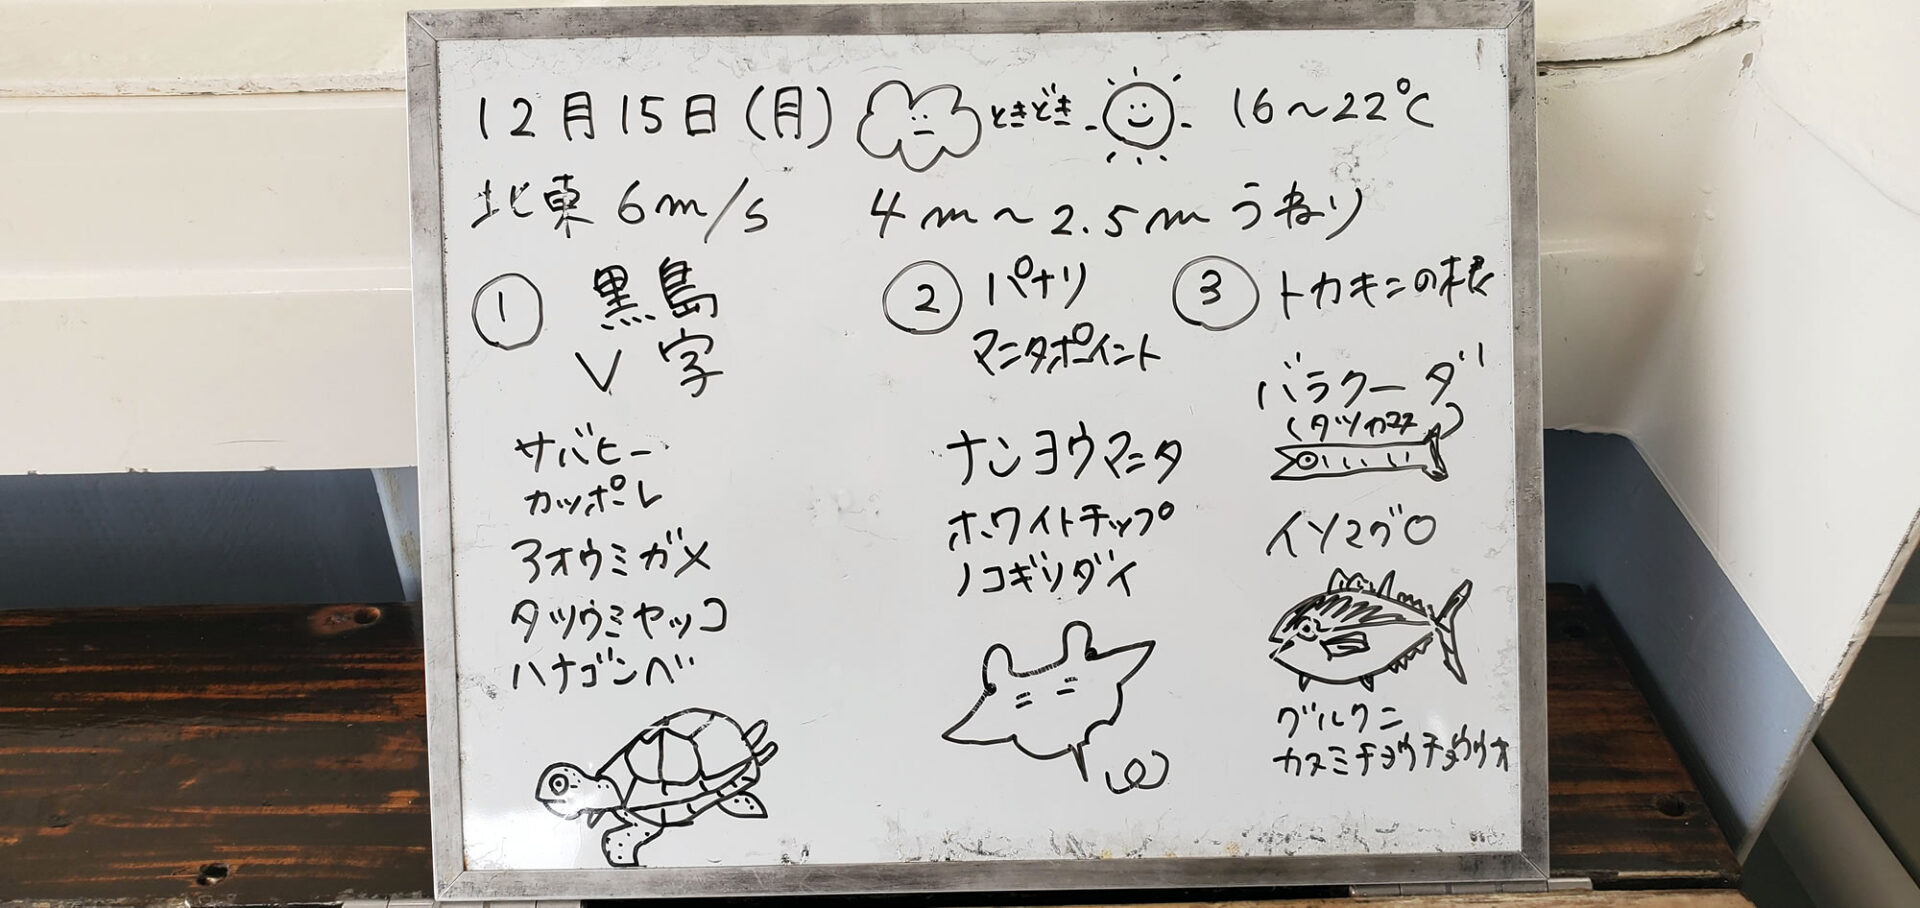 12月15日(月) ときどき 16~22℃
北東 6m/s 4m~2.5mうねり
① 黒島
V字
サバヒー
カッポーレ
アオウミガメ
タツウミヤッコ
ハナゴンベ
② パナリ
マンタポイント
ナンヨウマンタ
ホワイトチップ
ノコギリダイ
③ トカキンの根
バラクーダ
(タツカマス)
イソマグロ
グルクン
カスミチョウチョウウオ